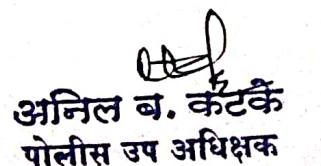 अनिल ब. कटके
पोलीस उप अधिक्षक